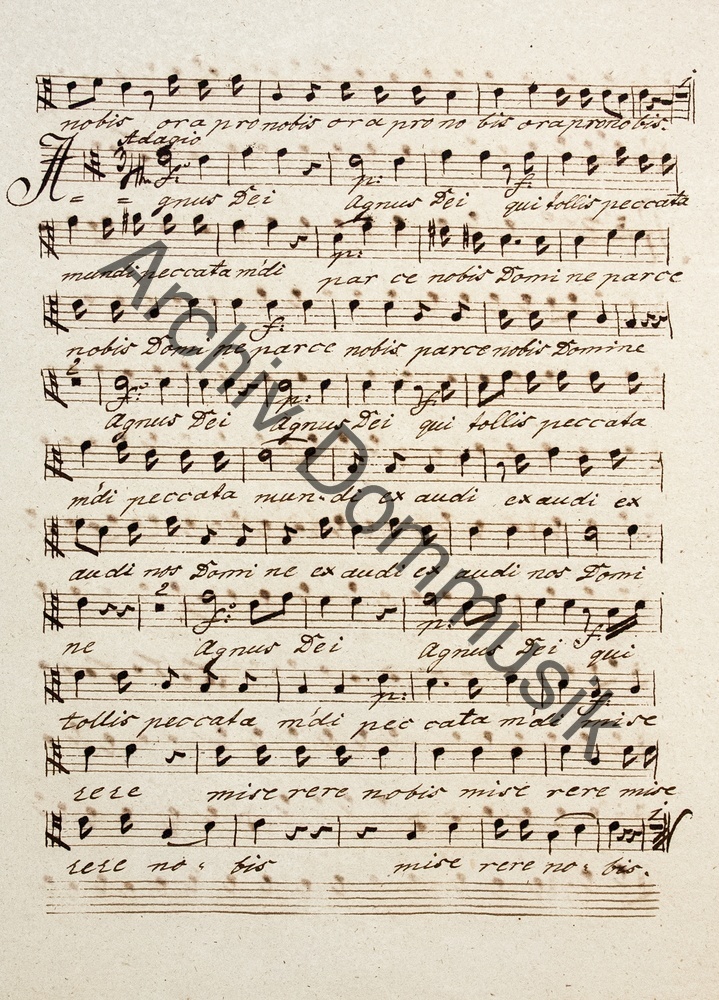 nobis ora pro nobis ora pro no bis ora pro no bis.
Adagio
A = = gnus Dei Agnus Dei qui tollis peccata
mundi peccata mdi par ce nobis Domi ne parce
nobis Domi ne parce nobis parce nobis Domine
2
Agnus Dei Agnus Dei qui tollis peccata
mdi peccata mun - di ex audi exaudi ex
audi nos Domi ne ex audi ex audi nos Domi
2
ne Agnus Dei Agnus Dei qui
tollis peccata mdi pec cata mdi mise
rere mise rere nobis mise rere mise
rere no - bis mise rere no - bis.
Archiv Dommusik